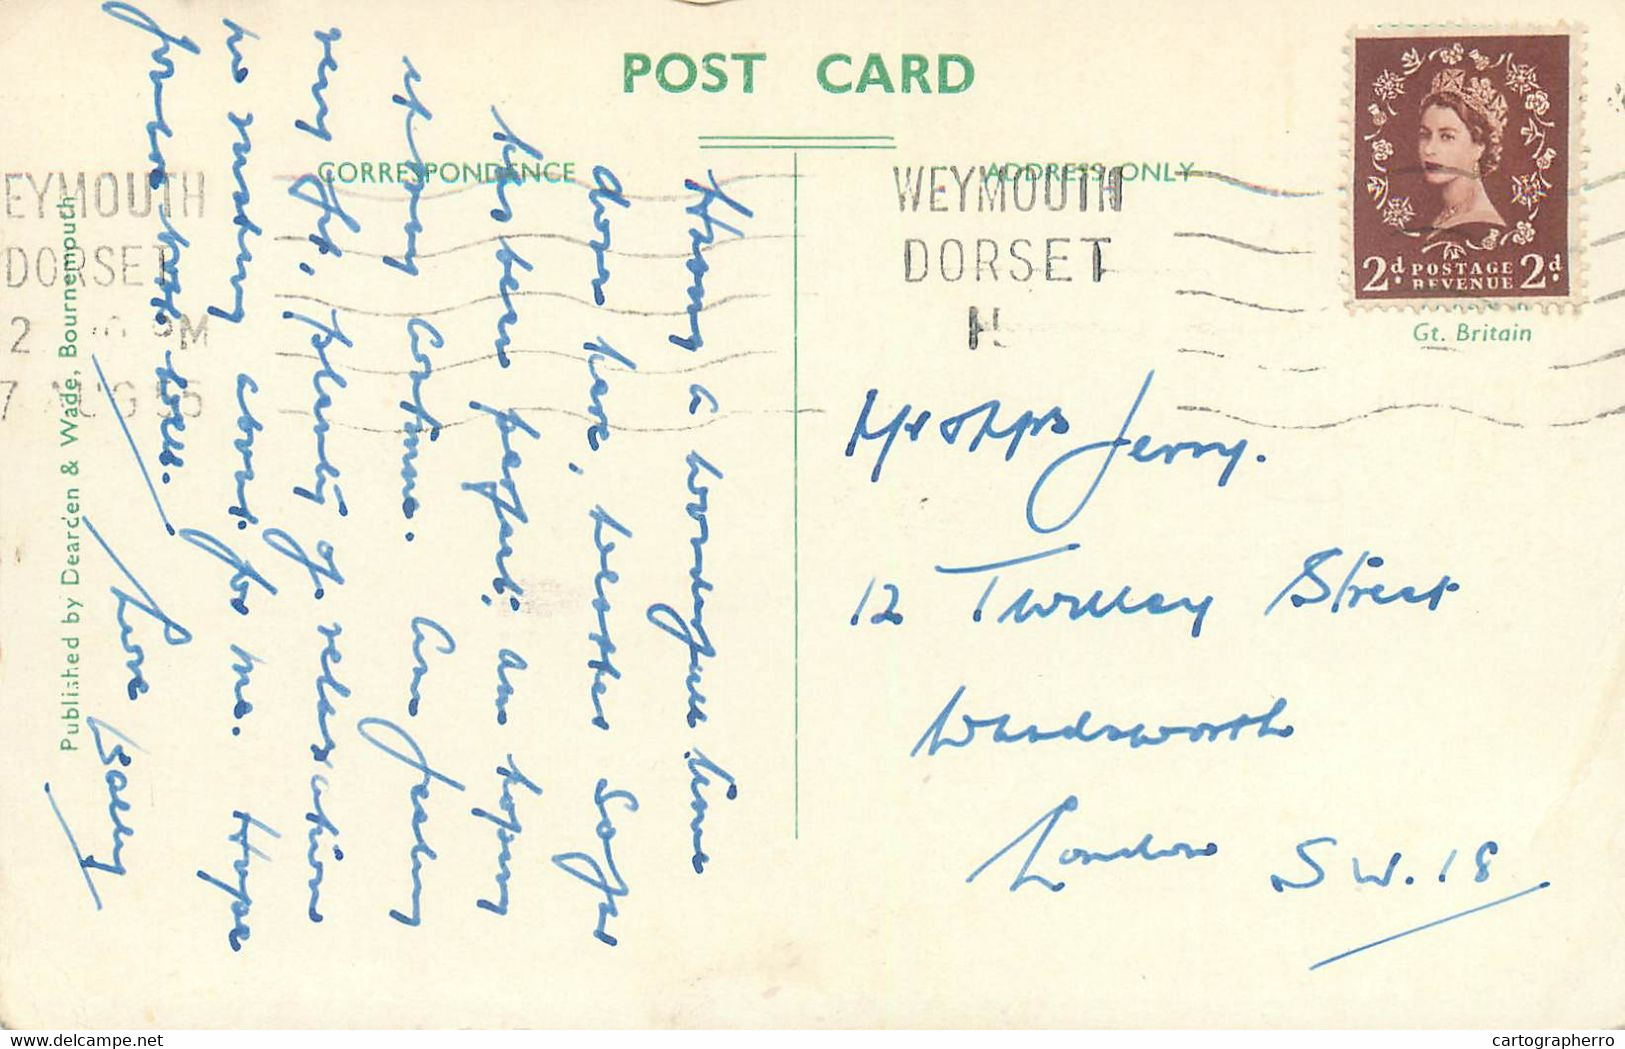 POST CARD
CORRESPONDENCE
ADDRESS ONLY
EYMOUTH
DORSET
2 PM
7 AUG 55
WEYMOUTH
DORSET
2d POSTAGE REVENUE 2d
Gt. Britain
Published by Dearden & Wade, Bournemouth
Having a wonderful time
down here, weather so far
has been perfect, am hoping
it may continue. Am feeling
very fit, plenty of relaxation
no rushing about for me. Hope
you are both well.
Love
Mr & Mrs Jerry.
12 Twilley Street
Wandsworth
London S W. 18
www.delcampe.net
cartographerro